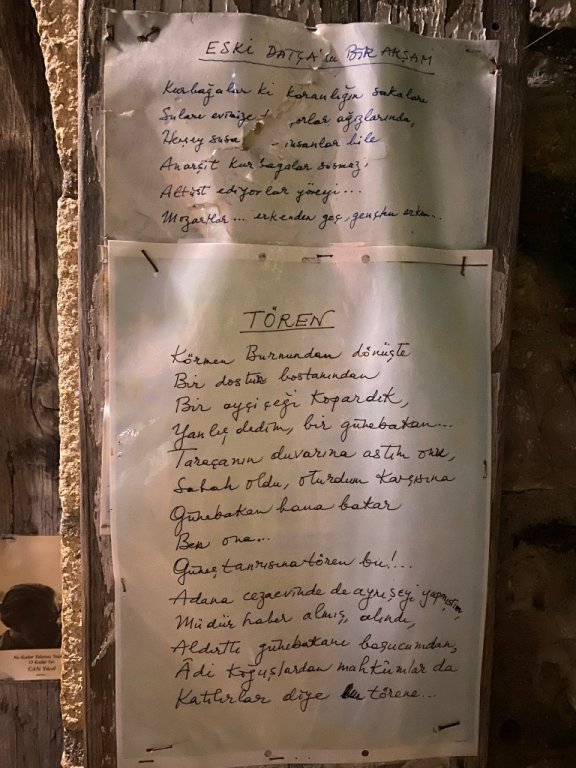 ESKİ DATÇA'da BİR AKŞAM
Kurbağalar ki karanlığın sakaları
Suları evimize orlar ağızlarında,
Herşey susa insanlar bile
Anarşit kurbağalar susmaz,
Altüst ediyorlar yöreyi...
Mozartlar... erkenden geç, gençten erken...
TÖREN
Körmen Burnundan dönüşte
Bir dostun bostanından
Bir ayçiçeği kopardık,
Yanlış dedim, bir günebakan...
Taraçanın duvarına astım onu,
Sabah oldu, oturdum karşısına
Günebakan bana bakar
Ben ona...
Güneş tanrısına tören bu!...
Adana cezaevinde de aynı şeyi yapmıştım,
Müdür haber almış, alındı,
Aldırttı günebakanı başucumdan,
Âdi koğuşlardan mahkûmlar da
Katılırlar diye bu törene...
Ne Kadar Yalansız Yaş
O Kadar İyi
CAN Yücel